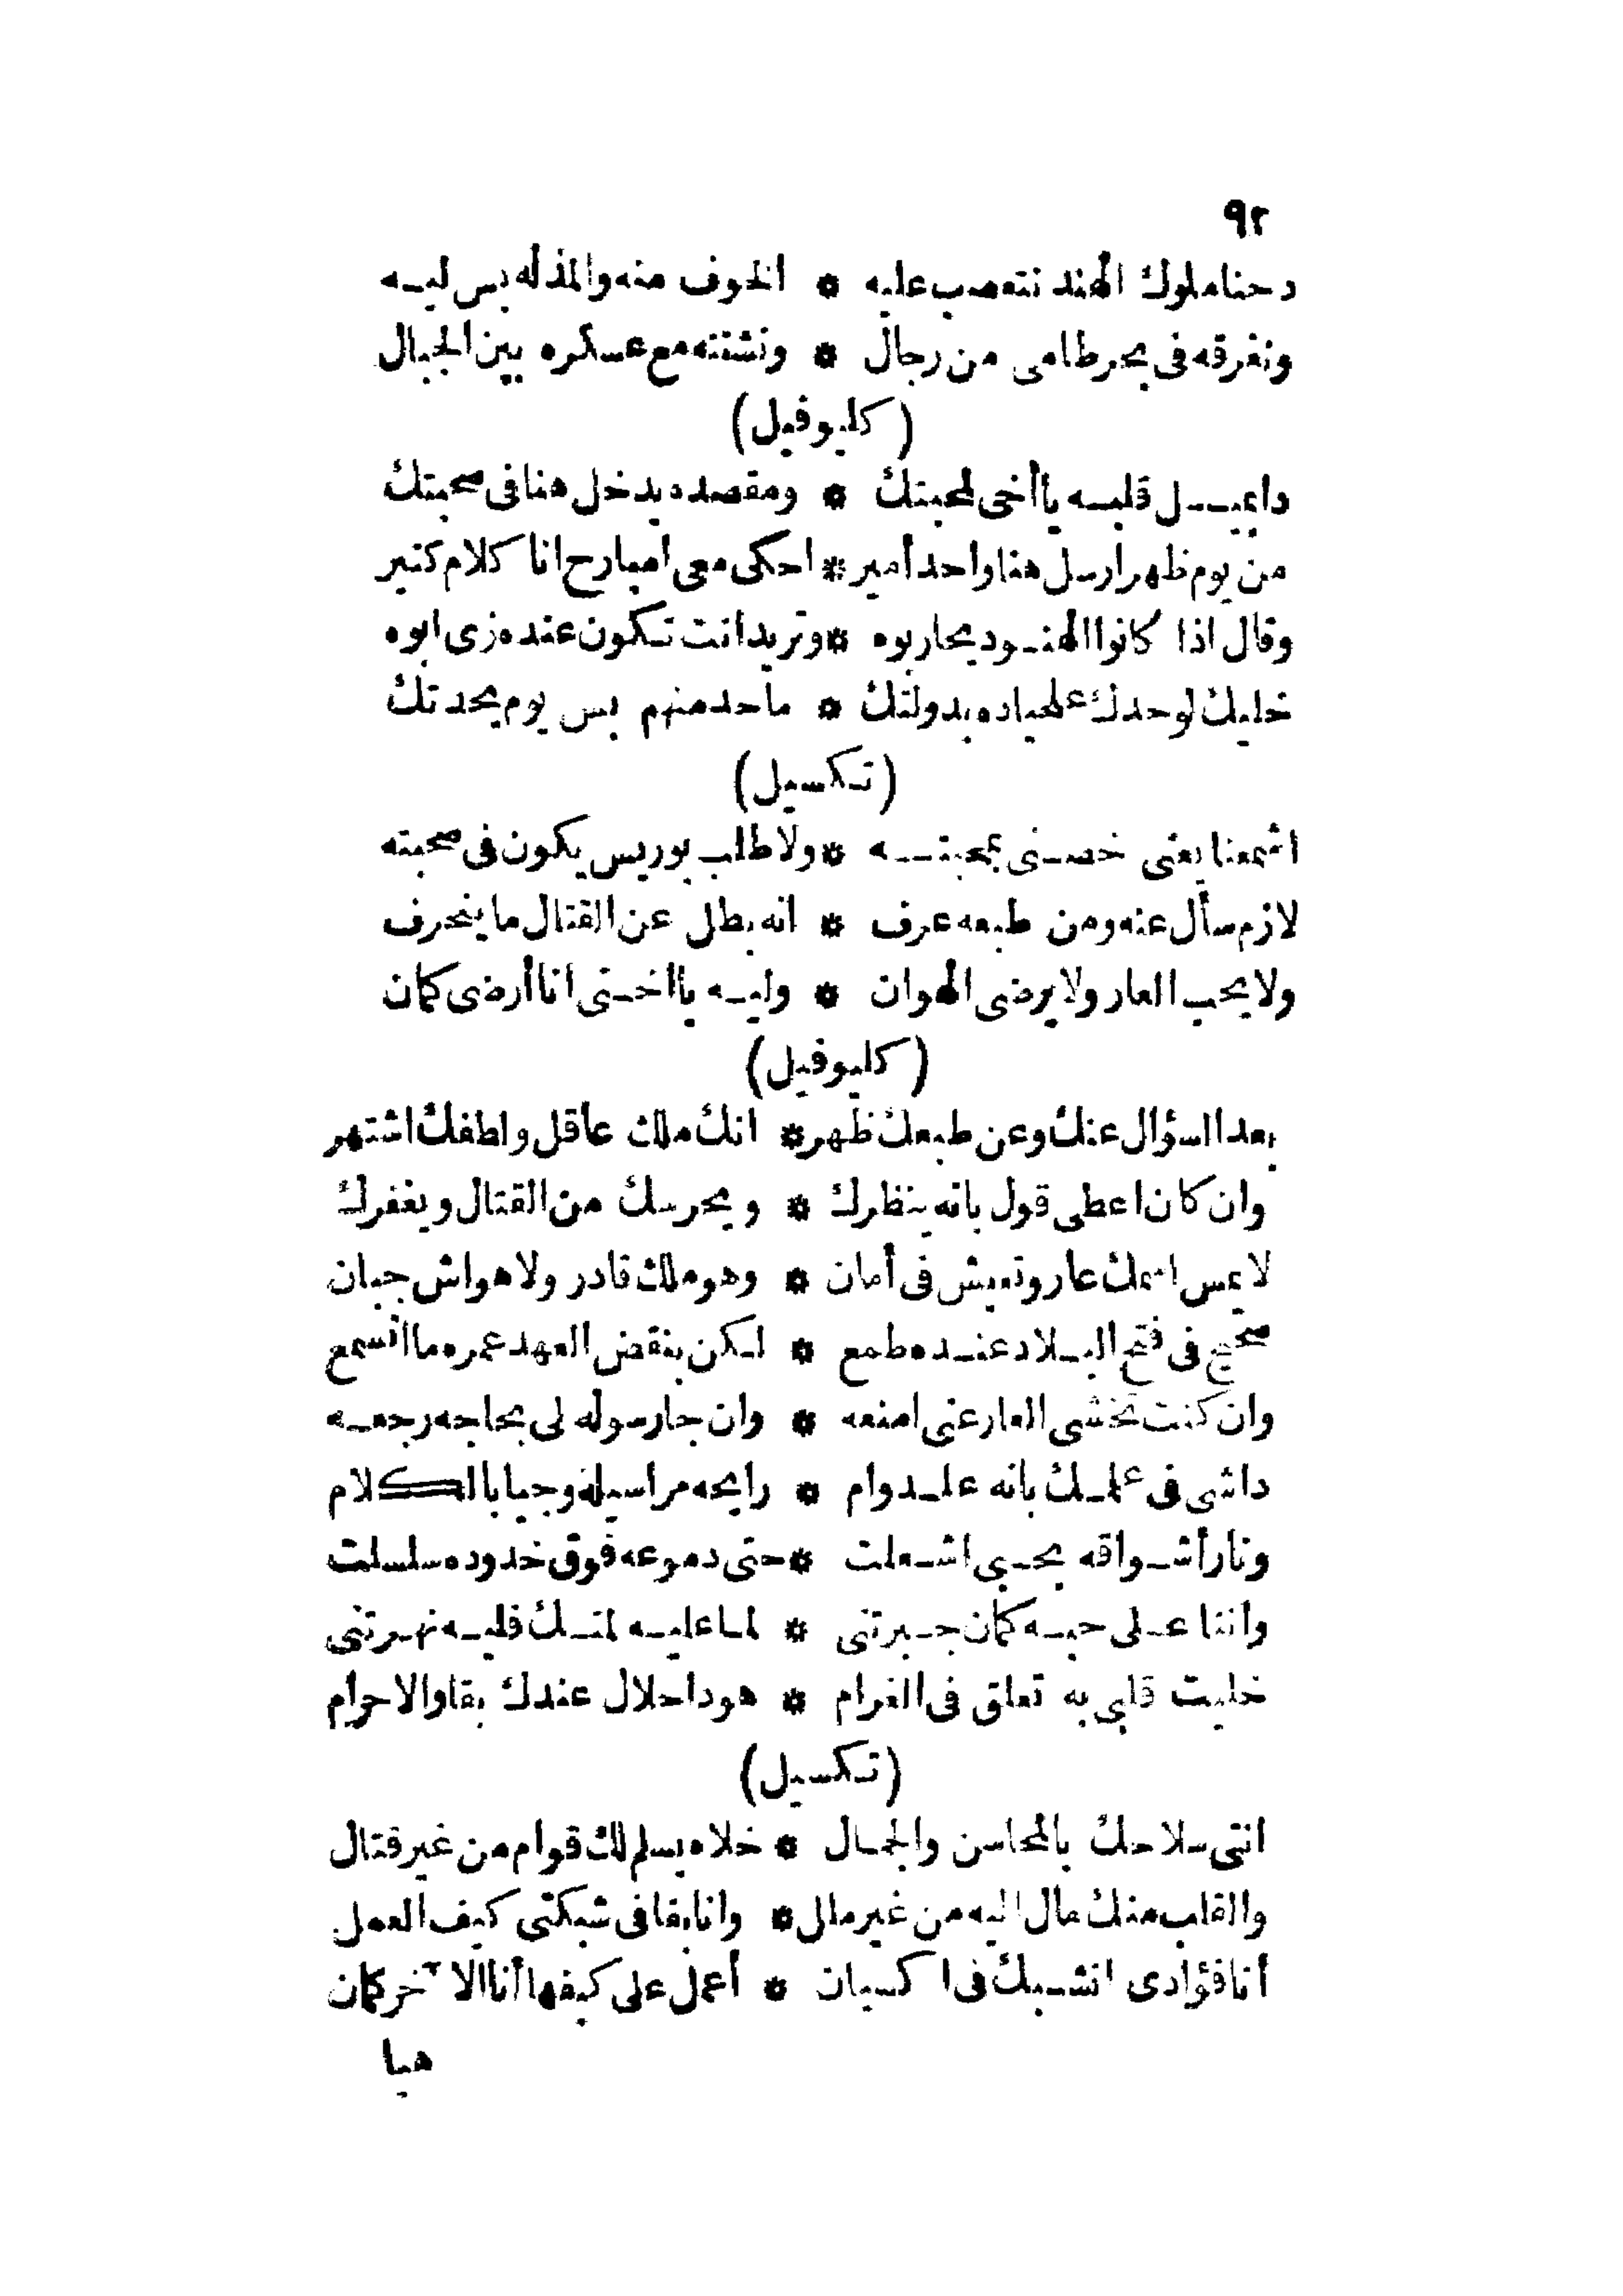 ٩٢
دحنا ملوك الهند نتعصب عليه * الخوف منه والمذله بس ليه
ونغرقه فى بحر طامى من رجال * ونشتته مع عسكره بين الجبال
(كليوفيل)
دا يميل قلبه يا أخى لمحبتك * ومقصده يدخل هنا فى صحبتك
من يوم ظهر ارسل هنا واحد أمير * احكى معى امبارح انا كلام كتير
وقال اذا كانوا الهنود يحاربوه * وتريد انت تكون عنده زى ابوه
خليك لوحدك علحياده بدولتك * ما حد منهم بس يوم يحدتك
(تكسيل)
اشمعنا يعنى خصنى بمحبته * ولا طلب بوريس يكون فى صحبته
لازم سأل عنه ومن طبعه عرف * انه بطل عن القتال ما ينحرف
ولا يحب العار ولا يرضى الهوان * وليه يا أختى انا أرضى كمان
(كليوفيل)
بعد السؤال عنك وعن طبعك ظهر * انك ملك عاقل ولطفك اشتهر
وان كان اعطى قول بانه ينظرك * ويحرسك من القتال ويغفرك
لا يمس اسمك عار وتعيش فى أمان * وهو ملك قادر ولا هواش جبان
صحيح فى فتح البلاد عنده طمع * لكن بنقض العهد عمره ما انسمع
وان كنت تخشى العار عنى امنعه * وان جا رسوله لى بحاجه رجعه
داشى فى علمك بانه علدوام * رايحه مراسيله وجيا بالكلام
ونار أشواقه بحبى اشعلت * حتى دموعه فوق خدوده سلسلت
وانتا على حبه كمان جبرتنى * لما عليه لمتك قليه نهرتنى
خليت قلبى به تعلق فى الغرام * هودا حلال عندك بقا والا حرام
(تكسيل)
انتى سلاحك بالمحاسن والجمال * خلاه يسلم لك قوام من غير قتال
والقلب منك مال اليه من غير ملل * وانا بقا فى شبكتى كيف العمل
أنا فؤادى انشبك فى اكسيان * أعمل على كيفها أنا الآخر كمان
هيا